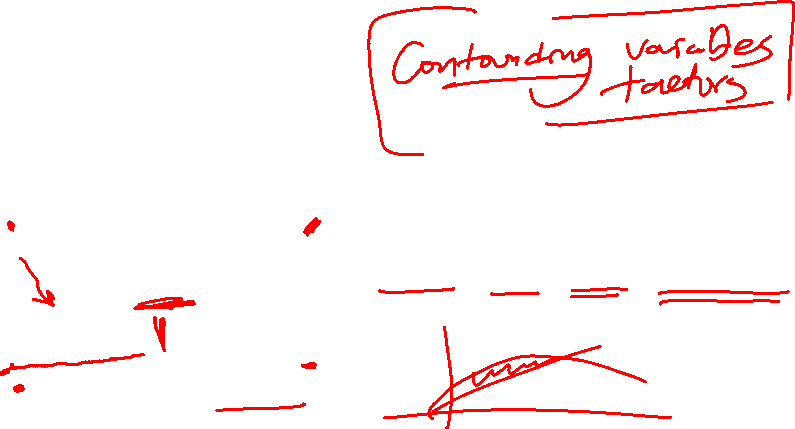 Confounding variables
factors